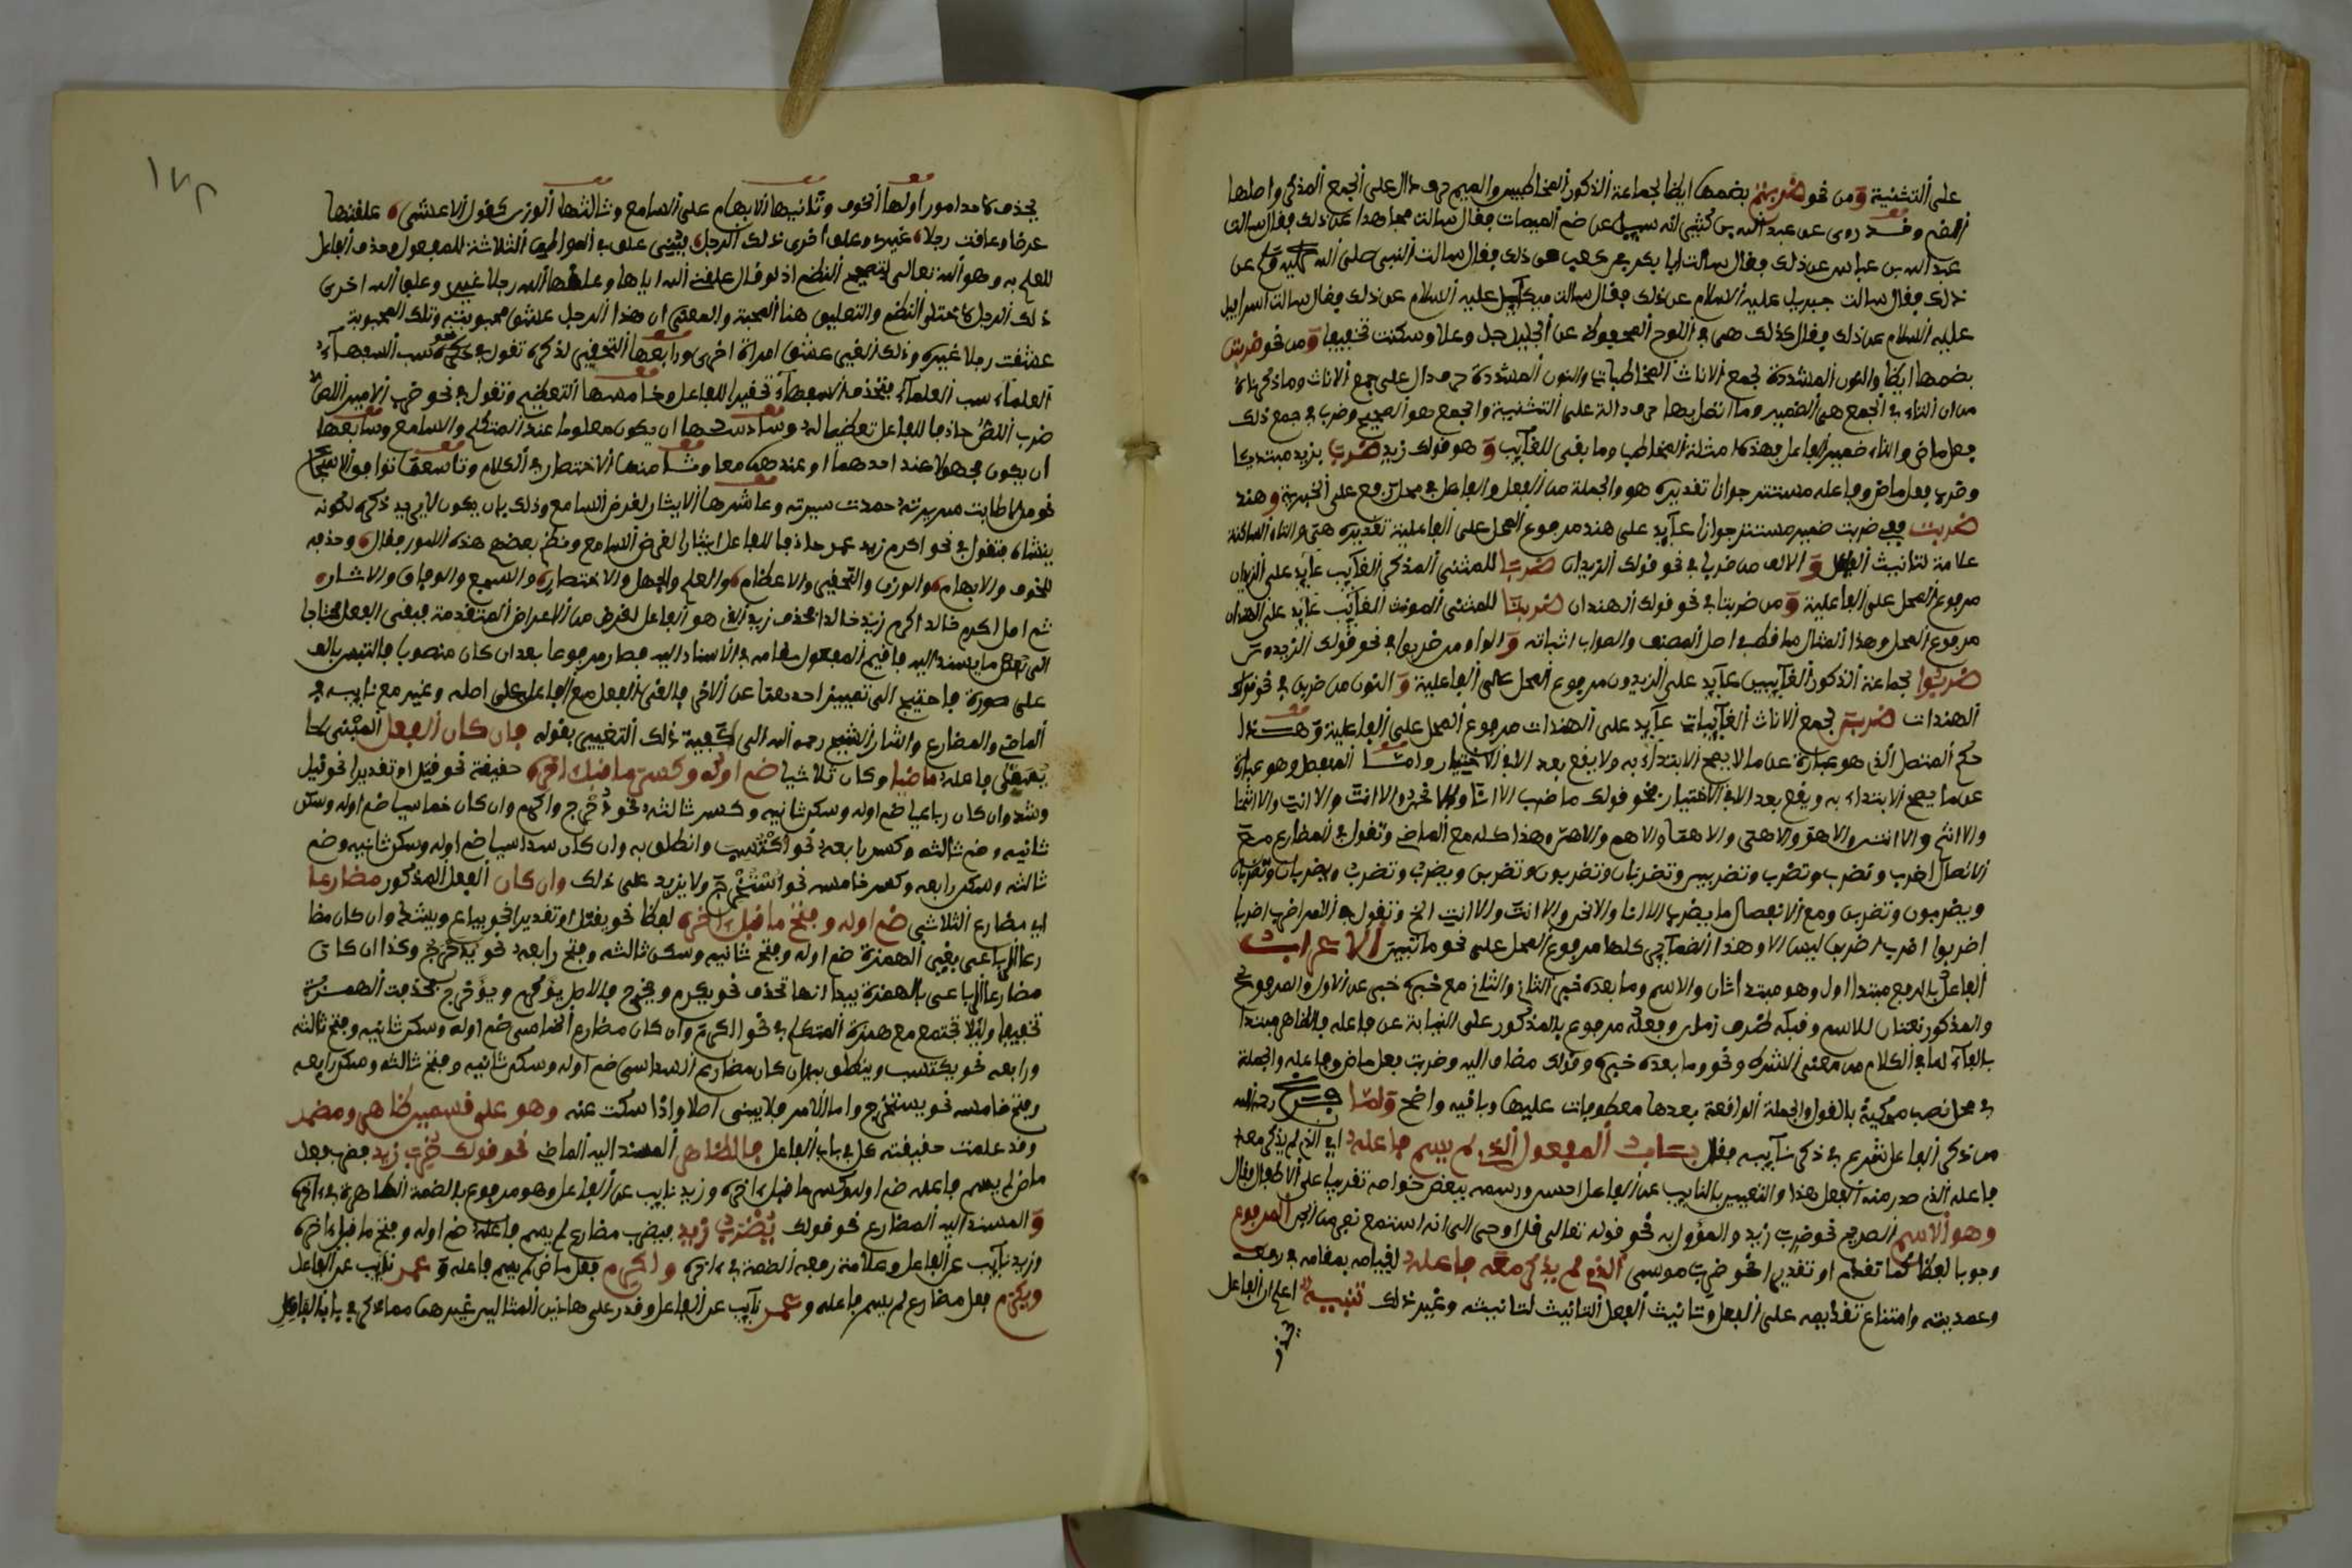 على التثنية ومن نحو ضربتم بضمها ايضا لجماعة الذكور المخاطبين والميم حرف دال على الجمع المذكر واصلها
الضم وقد روى عن عبد الله بن كثير انه سيل عن ضم الميمات فقال سالت مجاهدا عن ذلك فقال سالت
عبد الله بن عباس عن ذلك فقال سالت ابا بكر بن كعب عن ذلك فقال سالت النبي صلى الله عليه وسلم عن
ذلك فقال سالت جبريل عليه السلام عن ذلك فقال سالت ميكاييل عليه السلام عن ذلك فقال سالت اسرافيل
عليه السلام عن ذلك فقال كذلك هي في اللوح المحفوظ عن الجليل جل وعلا وسكنت تخفيفا ومن نحو ضربتن
بضمها ايضا والنون المشددة لجمع الاناث المخاطبات والنون المشددة حرف دال على جمع الاناث وما ذكرناه
من ان التاء في الجمع هي الضمير وما اتصل بها حرف دالة على التثنية والجمع هو الصحيح وضرب في جمع ذلك
فعل ماض والتاء ضمير الفاعل فهذه امثلة المخاطب وما بقي للغايب و هو قولك زيد ضرب فزيد مبتدا
وضرب فعل ماض وفاعله مستتر جوازا تقديره هو والجملة من الفعل والفاعل في محل رفع على الخبرية وهند
ضربت ففي ضربت ضمير مستتر جوازا عايد على هند مرفوع المحل على الفاعلية تقديره هي والتاء الساكنة
علامة لتانيث الفاعل و الالف من ضربا في نحو قولك الزيدان ضربا للمثنى المذكر الغايب عايد على الزيدان
مرفوع المحل على الفاعلية و من ضربتا في نحو قولك الهندان ضربتا للمثنى المونث الغايب عايد على الهندان
مرفوع المحل وهذا المثال ساقط في اصل المصنف والصواب اثباته و الواو من ضربوا في نحو قولك الزيدون
ضربوا لجماعة الذكور الغايبين عايد على الزيدون مرفوع المحل على الفاعلية و النون من ضربن في نحو قولك
الهندات ضربن لجمع الاناث الغايبات عايد على الهندات مرفوع المحل على الفاعلية وهذا
حكم المتصل الذي هو عبارة عن ما لا يصح الابتداء به ولا يقع بعد الا في الاختيار واما المنفصل وهو عبارة
عن ما يصح الابتداء به ويقع بعد الا في الاختيار نحو قولك ما ضرب الا انا والا نحن والا انت والا انت والا انتما
والا انتم والا انتن والا هو والا هي والا هما والا هم والا هن وهذا كله مع الماضي وتقول في المضارع مع
الاتصال اضرب ونضرب وتضرب وتضربين وتضربان وتضربون وتضربن ويضرب وتضرب ويضربان وتضربان
ويضربون وتضربن ومع الانفصال ما يضرب الا انا والا نحن والا انت والا انت الخ وتقول في الامر اضرب اضربا
اضربوا اضربي اضربن ليس الا وهذا الضماير كلها مرفوع المحل على نحو ما تبين الاعراب
الفاعل بالرفع مبتدا اول وهو مبتدا ثان والاسم وما بعده خبر الثاني والثاني مع خبره خبر عن الاول والمرفوع
والمذكور نعتان للاسم وقبله ظرف زمان وفعله مرفوع بالمذكور على النيابة عن فاعله فالظاهر مبتدا
بالفاء لما في الكلام من معنى الشرط ونحو وما بعده خبره وقولك مضاف اليه وضرب فعل ماض وفاعله والجملة
في محل نصب محكية بالقول والجملة الواقعة بعدها معطوفات عليها وباقيه واضح ولما فرغ رحمه الله
من ذكر الفاعل شرع في ذكر نايبه فقال باب المفعول الذي لم يسم فاعله اي الذي لم يذكر معه
فاعله الذي صدر منه الفعل هذا والتعبير بالنايب عن الفاعل احسن ورسمه ببعض خواصه تقريبا على الاطفال فقال
وهو الاسم الصريح نحو ضرب زيد والمؤول به نحو قوله تعالى قل اوحي الي انه استمع نفر من الجن المرفوع
وجوبا لفظا كما تقدم او تقديرا نحو ضرب موسى الذي لم يذكر معه فاعله لقيامه بمقامه في رفعه
وعمديته وامتناع تقديمه على الفعل وتانيث الفعل التانيث لتانيثه وغير ذلك تنبيه اعلم ان الفاعل
يحذف
١٧٢
يحذف لاحد امور اولها الخوف وثانيها الابهام على السامع وثالثها الوزن كقول الاعشى علقتها
عرضا وعلقت رجلا غيري وعلق اخرى ذلك الرجل فبني علق في المواطن الثلاثة للمفعول وحذف الفاعل
للعلم به وهو الله تعالى لتصحيح النظم اذ لو قال علقني الله اياها وعلقها الله رجلا غيري وعلق الله اخرى
ذلك الرجل لاختل النظم والتعليق هنا المحبة والمعنى ان هذا الرجل عشق محبوبته وتلك المحبوبة
عشقت رجلا غيره وذلك الغير عشق امراة اخرى ورابعها التحقير لذكره تقول في نحو سب السفهاء
العلماء سب العلماء فتحذف السفهاء تحقيرا للفاعل وخامسها التعظيم وتقول في نحو ضرب الامير اللص
ضرب اللص حاذفا للفاعل تعظيما له وسادسها ان يكون معلوما عند المتكلم والسامع وسابعها
ان يكون مجهولا عند احدهما او عندهما معا وثامنها الاختصار في الكلام وتاسعها توافق الاسجاع
نحو من طابت سريرته حمدت سيرته وعاشرها الايثار لغرض السامع وذلك بان يكون لا يريد ذكره لكونه
يشناه فتقول في نحو اكرم زيد عمر حاذفا للفاعل ايثارا لغرض السامع ونظم بعضهم هذه الامور فقال وحذفه
للخوف والابهام والوزن والتحقير والاعظام والعلم والجهل والاختصار والسجع والوفاق والايثار
ثم اصل اكرم خالد اكرم زيد خالدا فحذف زيد الذي هو الفاعل لغرض من الاعراض المتقدمة فبقي الفعل محتاجا
الى ما يسند اليه فاقيم المفعول مقامه في الاسناد اليه فصار مرفوعا بعد ان كان منصوبا فالتبس بالفاعل
على صورة فاحتيج الى تمييز احدهما عن الاخر فابقي الفعل مع الفاعل على اصله وغير مع نايبه في
الماضي والمضارع واشار الشيخ رحمه الله الى كيفية ذلك التغيير بقوله فان كان الفعل المبني لما
لم يسم فاعله ماضيا وكان ثلاثيا ضم اوله وكسر ما قبل اخره حقيقة نحو قتل او تقديرا نحو قيل
وشد وان كان رباعيا ضم اوله وسكن ثانيه وكسر ثالثه نحو دحرج واكرم وان كان خماسيا ضم اوله وسكن
ثانيه وضم ثالثه وكسر رابعه نحو اكتسب وانطلق به وان كان سداسيا ضم اوله وسكن ثانيه وضم
ثالثه وسكن رابعه وكسر خامسه نحو استخرج ولا يزيد على ذلك وان كان الفعل المذكور مضارعا
اي مضارع الثلاثي ضم اوله وفتح ما قبل اخره لفظا نحو يقتل او تقديرا نحو يباع ويشد وان كان مضا
رعا للرباعي بغير الهمزة ضم اوله وفتح ثانيه وسكن ثالثه وفتح رابعه نحو يدحرج وكذا ان كان
مضارعا للرباعي بالهمزة بيد انها تحذف نحو يكرم ويخرج فالاصل يؤكرم ويؤخرج فحذفت الهمزة
تخفيفا وليلا تجتمع مع همزة المتكلم في نحو اكرم وان كان مضارع الخماسي ضم اوله وسكن ثانيه وفتح ثالثه
ورابعه نحو يكتسب وينطلق به وان كان مضارع السداسي ضم اوله وسكن ثانيه وفتح ثالثه وسكن رابعه
وفتح خامسه نحو يستخرج واما الامر فلا يبنى اصلا ولذا سكت عنه وهو على قسمين ظاهر ومضمر
وقد علمت حقيقته كل في باب الفاعل فالظاهر المسند اليه الماضي نحو قولك ضرب زيد فضرب فعل
ماض لم يسم فاعله ضم اوله وكسر ما قبل اخره وزيد نايب عن الفاعل وهو مرفوع بالضمة الظاهرة في اخره
و المسند اليه المضارع نحو قولك يضرب زيد فيضرب مضارع لم يسم فاعله ضم اوله وفتح ما قبل اخره
وزيد نايب عن الفاعل وعلامة رفعه الضمة في اخره واكرم فعل ماض لم يسم فاعله و عمر نايب عن الفاعل
ويكرم فعل مضارع لم يسم فاعله و عمر نايب عن الفاعل وقد رعلى هاذين المثالين غيرهما مما ذكر في باب الفاعل